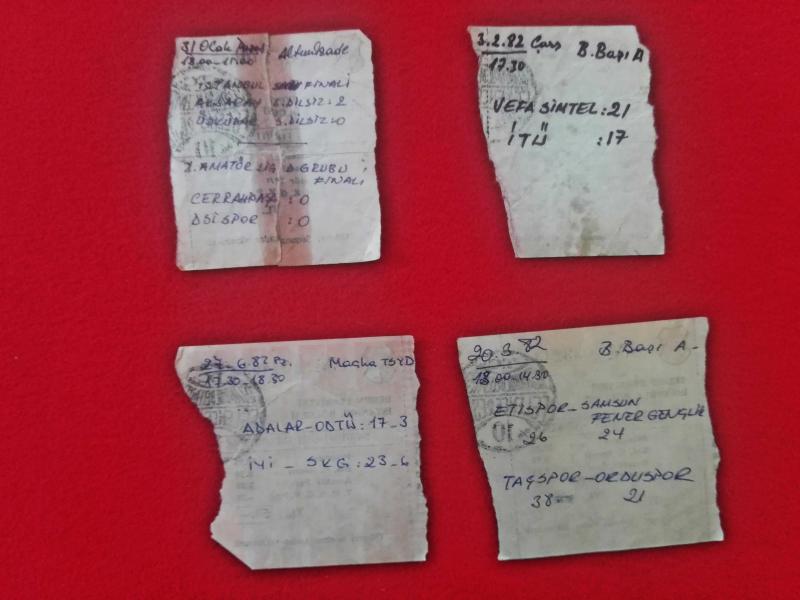 31 Ocak Pazar Altunizade
13.00-15.00
İSTANBUL FİNALİ
AKSARAY S.DİLSİZ: 2
ÜSKÜDAR S.DİLSİZ: 0
2. AMATÖR LİG D GRUBU
FİNALİ
CERRAHPAŞA : 0
DSİ SPOR : 0
3.2.82 Çarş B.Başı A
17.30
VEFA SİMTEL: 21
İTÜ : 17
27.6.82 Pz. Maçka TSYD
17.30-18.30
ADALAR-ODTÜ: 17-3
İYİ - SKG: 23-6
20.3.82 B.Başı A-
13.00-14.30
ETİSPOR-SAMSUN
FENER GENÇLİK
26 24
TAÇSPOR-ORDUSPOR
38 21